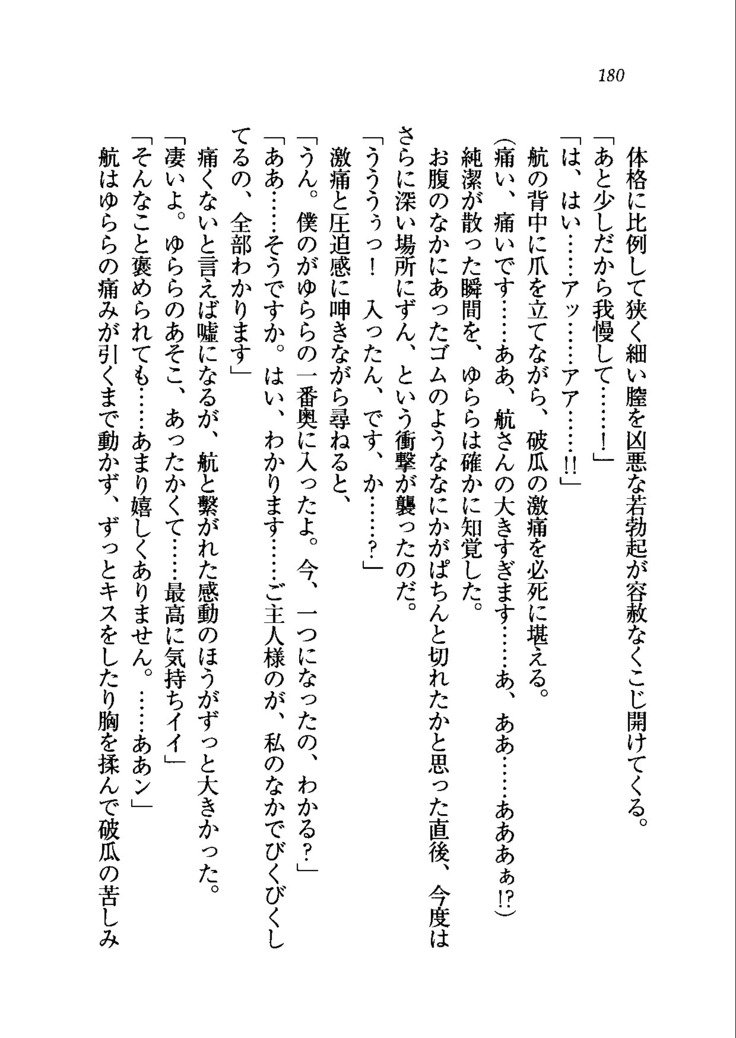 180
体格に比例して狭く細い膣を凶悪な若勃起が容赦なくこじ開けてくる。
「あと少しだから我慢して……！」
「は、はい……アッ……アア……!!」
航の背中に爪を立てながら、破瓜の激痛を必死に堪える。
(痛い、痛いです……ああ、航さんの大きすぎます……あ、ああ……あああぁ!?)
純潔が散った瞬間を、ゆららは確かに知覚した。
お腹のなかにあったゴムのようななにかがぱちんと切れたかと思った直後、今度は
さらに深い場所にずん、という衝撃が襲ったのだ。
「うううぅっ！　入ったん、です、か……？」
激痛と圧迫感に呻きながら尋ねると、
「うん。僕のがゆららの一番奥に入ったよ。今、一つになったの、わかる？」
「ああ……そうですか。はい、わかります……ご主人様のが、私のなかでびくびくし
てるの、全部わかります」
痛くないと言えば嘘になるが、航と繋がれた感動のほうがずっと大きかった。
「凄いよ。ゆららのあそこ、あったかくて……最高に気持ちイイ」
「そんなこと褒められても……あまり嬉しくありません。……ああン」
航はゆららの痛みが引くまで動かず、ずっとキスをしたり胸を揉んで破瓜の苦しみ